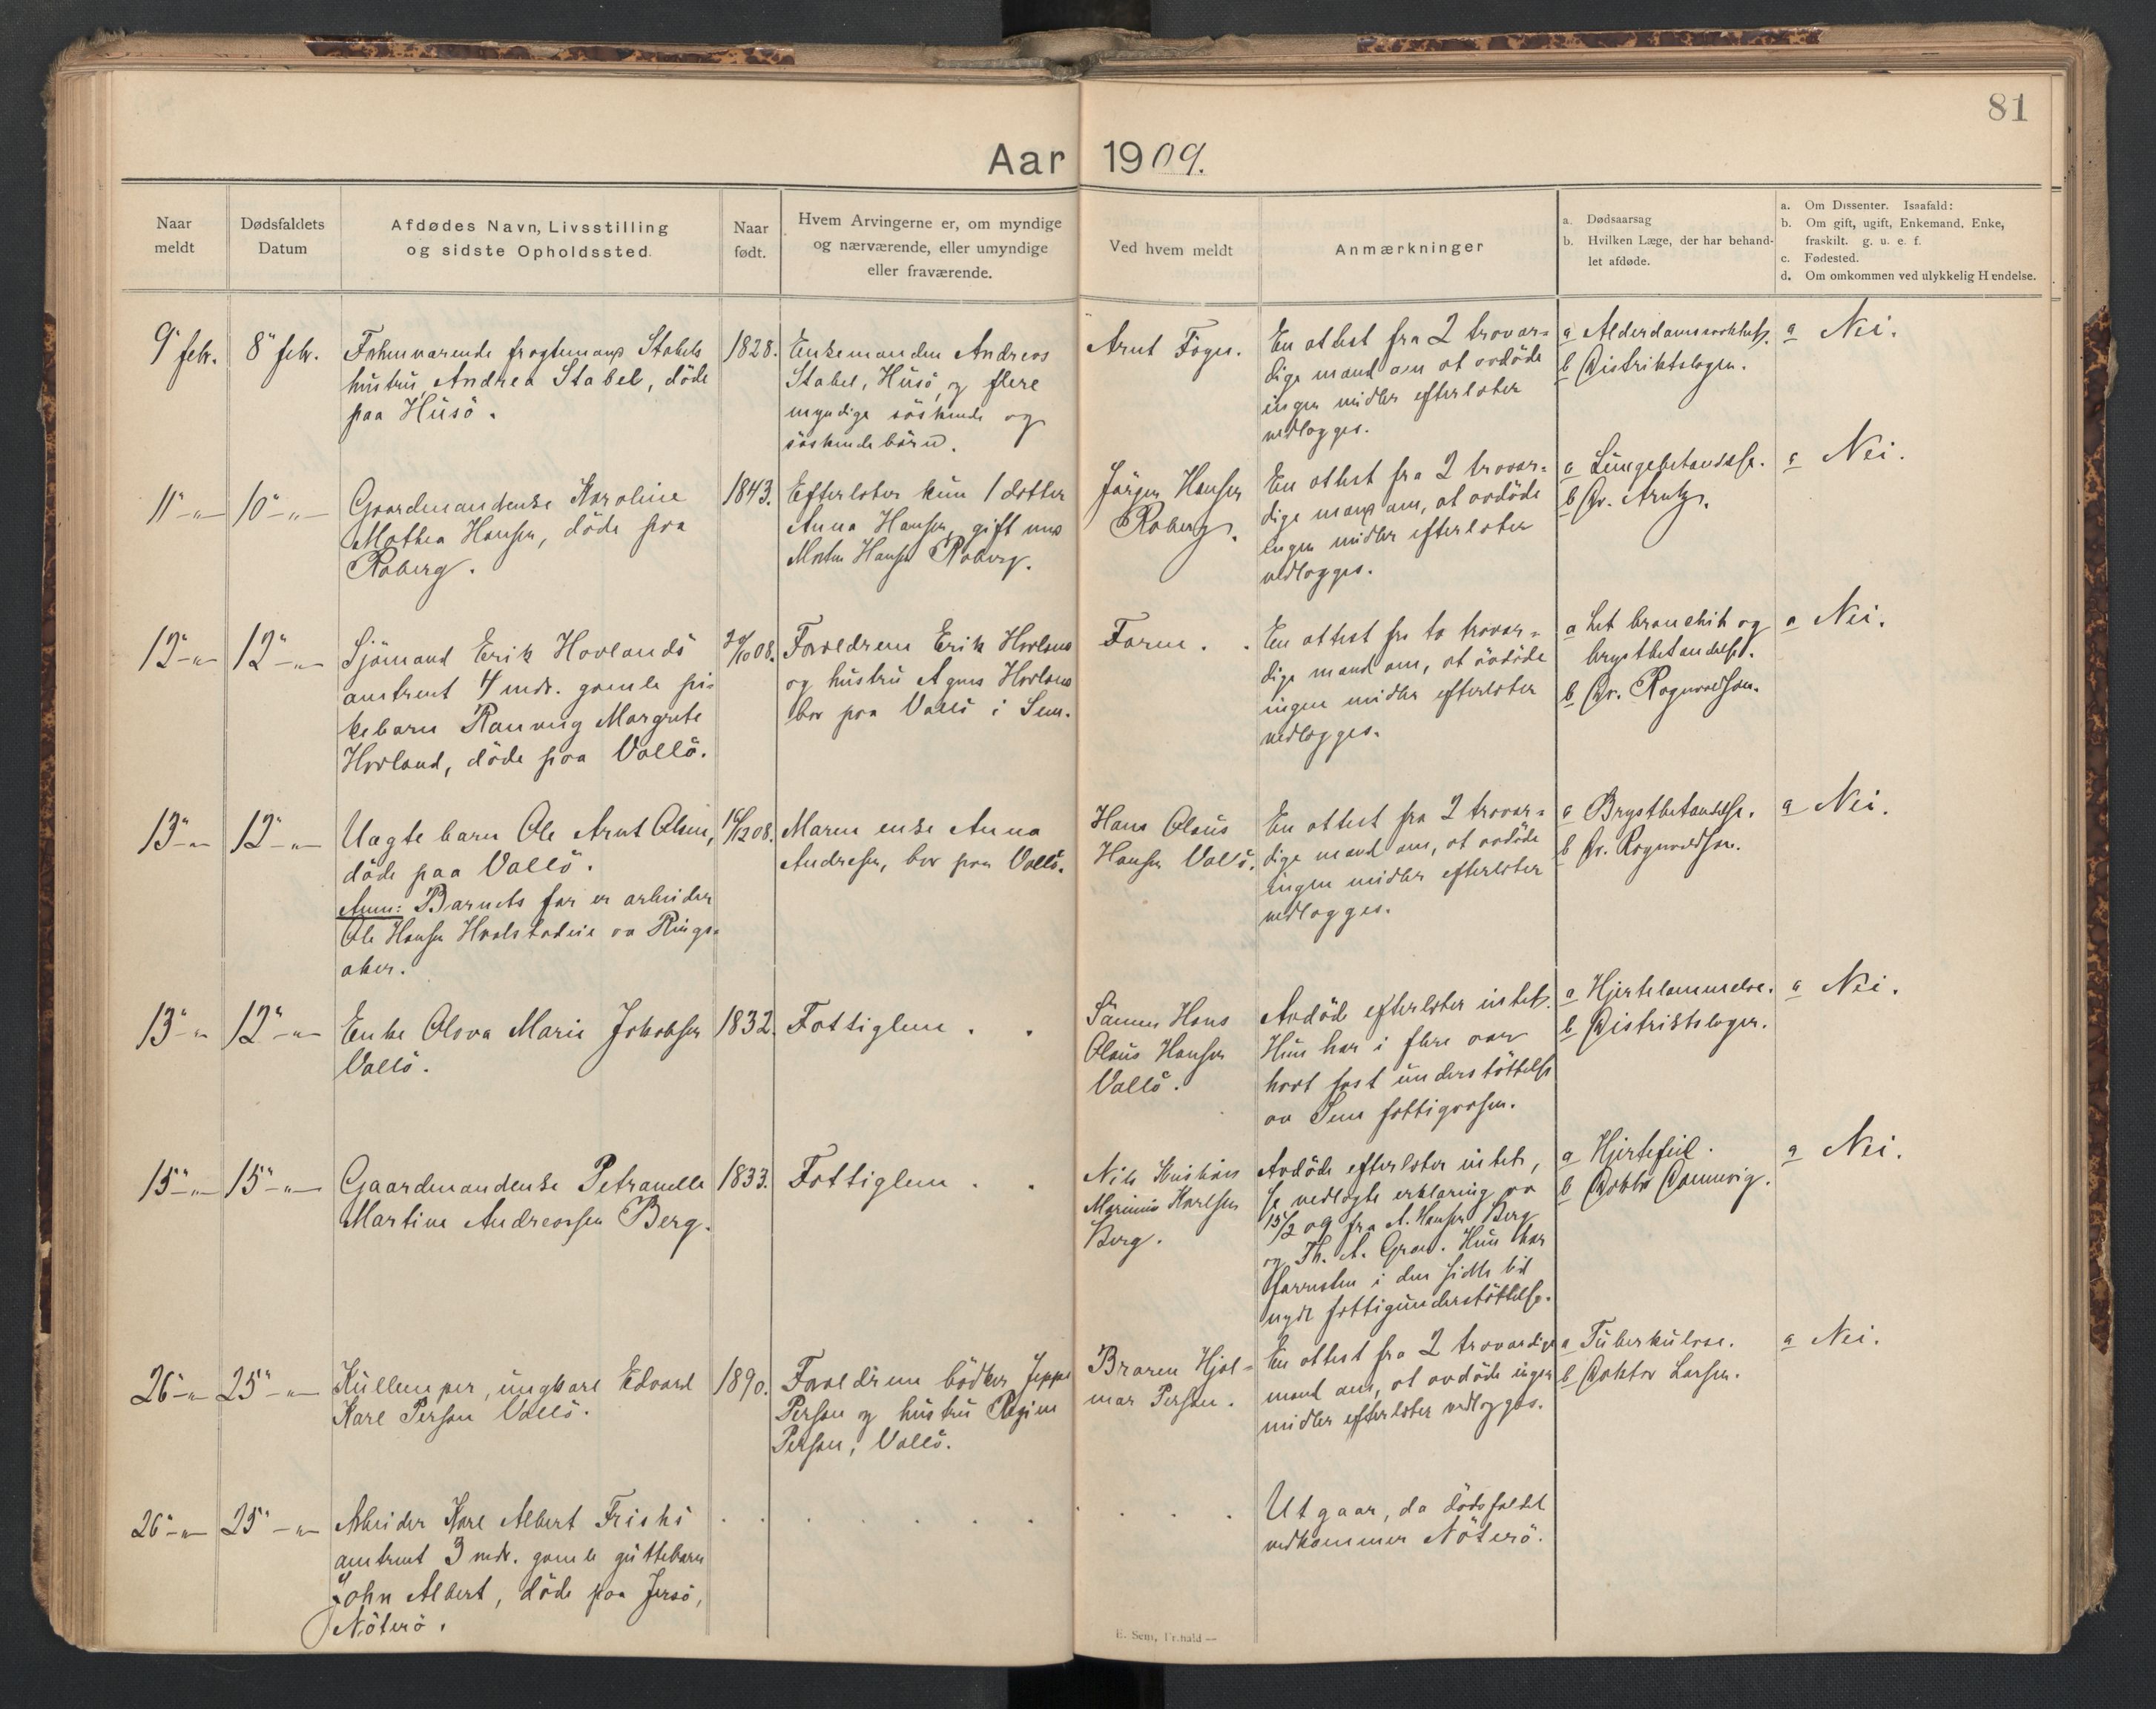 81
Aar 1909.
Naar meldt
Dødsfaldets Datum
Afdødes Navn, Livsstilling og sidste Opholdssted.
Naar født.
Hvem Arvingerne er, om myndige og nærværende, eller umyndige eller fraværende.
Ved hvem meldt
Anmærkninger
a. Dødsaarsag
b. Hvilken Læge, der har behandlet afdøde.
a. Om Dissenter. Isaafald:
b. Om gift, ugift, Enkemand, Enke, fraskilt. g. u. e. f.
c. Fødested.
d. Om omkommen ved ulykkelig Hændelse.
9" febr.
8" febr.
Forhenværende fragtemand Stabels
hustru Andrea Stabel, döde
paa Husö.
1828.
Enkemanden Andreas
Stabel, Husö, og flere
myndige söskende og
söskendebörn.
Arnt Foyn.
En attest fra 2 trovær-
dige mænd om at avdöde
ingen midler efterlater
vedlægges.
a Alderdomssvakhet.
b Distriktslægen.
a Nei.
11"-"-
10"-"-
Gaardmandsenke Karoline
Mathea Hansen, döde paa
Raberg.
1843.
Efterlater kun 1 datter
Anna Hansen, gift med
Morten Hansen Raberg.
Jörgen Hansen
Raberg.
En attest fra 2 trovær-
dige mænd om, at avdöde
ingen midler efterlater
vedlægges.
a Lungebetændelse.
b Dr. Arntz.
a Nei.
12"-"-
12"-"-
Sjömand Erik Hovlands
omtrent 4 mdr. gamle pi-
kebarn Ranveig Margrete
Hovland, döde paa Vallö.
20/10 08.
Forældrene Erik Hovland
og hustru Agnes Hovland
bor paa Vallö i Sem.
Faren. .
En attest fra to trovær-
dige mænd om, at avdöde
ingen midler efterlater
vedlægges.
a Let bronchit og
brystbetændelse.
b Dr. Rognvaldson.
a Nei.
13"-"-
12"-"-
Uægte barn Ole Arnt Olsen,
döde paa Vallö.
Anm: Barnets far er arbeider
Ole Hansen Hvalstadeie av Rings-
aker.
16/12 08.
Moren enke Anna
Andresen, bor paa Vallö.
Hans Olaus
Hansen Vallö.
En attest fra 2 trovær-
dige mænd om, at avdöde
ingen midler efterlater
vedlægges.
a Brystbetændelse.
b Dr. Rognvaldson.
a Nei.
13"-"-
12"-"-
Enke Olava Marie Jakobsen
Vallö.
1832.
Fattiglem . .
Sönnen Hans
Olaus Hansen
Vallö.
Avdöde efterlater intet.
Hun har i flere aar
havt fast understöttelse
av Sem fattigvæsen.
a Hjertelammelse.
b Distriktslægen.
a Nei.
15"-"-
15"-"-
Gaardmandsenke Petranelle
Martine Andreassen Berg.
1833.
Fattiglem . .
Nils Kristian
Marinius Karlsen
Berg.
Avdöde efterlater intet,
se vedlagte erklæring av
15/2 09 fra A. Hansen Berg
og Th. A. Grav. Hun har
forresten i den sidste tid
nydt fattigunderstöttelse.
a Hjertefeil.
b Doktor
a Nei.
26"-"-
25"-"-
Kullemper, ungkarl Edvard
Karl Person Vallö.
1890.
Forældrene bödker Jeppe
Person og hustru Regine
Person, Vallö.
Broren Hjal-
mar Person.
En attest fra 2 troværdige
mænd om, at avdöde ingen
midler efterlater vedlægges.
a Tuberkulose.
b Doktor Larsen.
a Nei.
26"-"-
25"-"-
Arbeider Karl Albert Frichs
omtrent 3 mdr. gamle guttebarn
John Albert, döde paa Jersö,
Nöterö.
Utgaar, da dödsfaldet
vedkommer Nöterö.
E. Sem, Fr.hald —